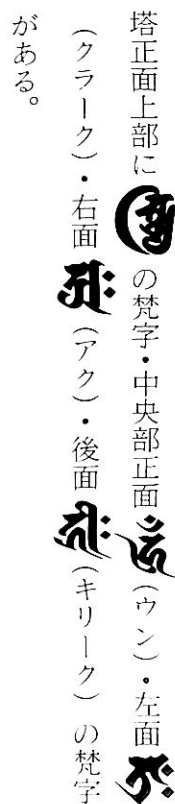 塔正面上部に の梵字・中央部正面 （ウン）・左面
（クラーク）・右面 （アク）・後面 （キリーク）の梵字
がある。